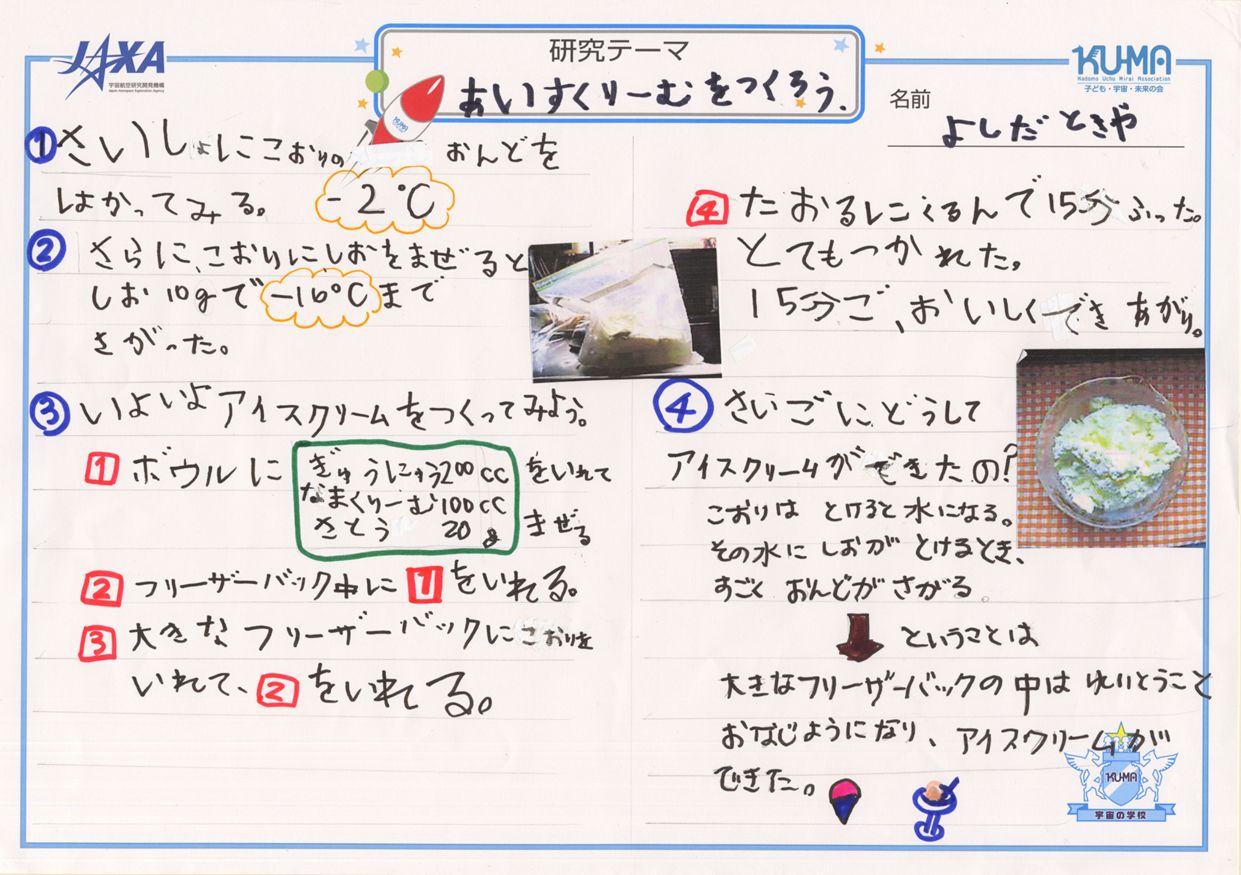 JAXA
宇宙航空研究開発機構
Japan Aerospace Exploration Agency
研究テーマ
あいすくりーむをつくろう.
KUMA
KU-MA
Kodomo Uchu Mirai Association
子ども・宇宙・未来の会
名前
よしだときや
① さいしょにこおりの おんどを
はかってみる。 -2℃
② さらに、こおりにしおをまぜると
しお10gで -16℃ まで
さがった。
③ いよいよアイスクリームをつくってみよう。
1 ボウルに
ぎゅうにゅう200cc
なまくりーむ100cc
さとう 20g
をいれて
まぜる
2 フリーザーバック中に 1 をいれる。
3 大きなフリーザーバックにこおりを
いれて、 2 をいれる。
4 たおるにくるんで15分ふった。
とてもつかれた。
15分ご、おいしくできあがり。
④ さいごにどうして
アイスクリームができたの?
こおりは とけると水になる。
その水に しおが とけるとき、
すごく おんどがさがる。
ということは
大きなフリーザーバックの中は れいとうこと
おなじようになり、アイスクリームが
できた。
KUMA
宇宙の学校